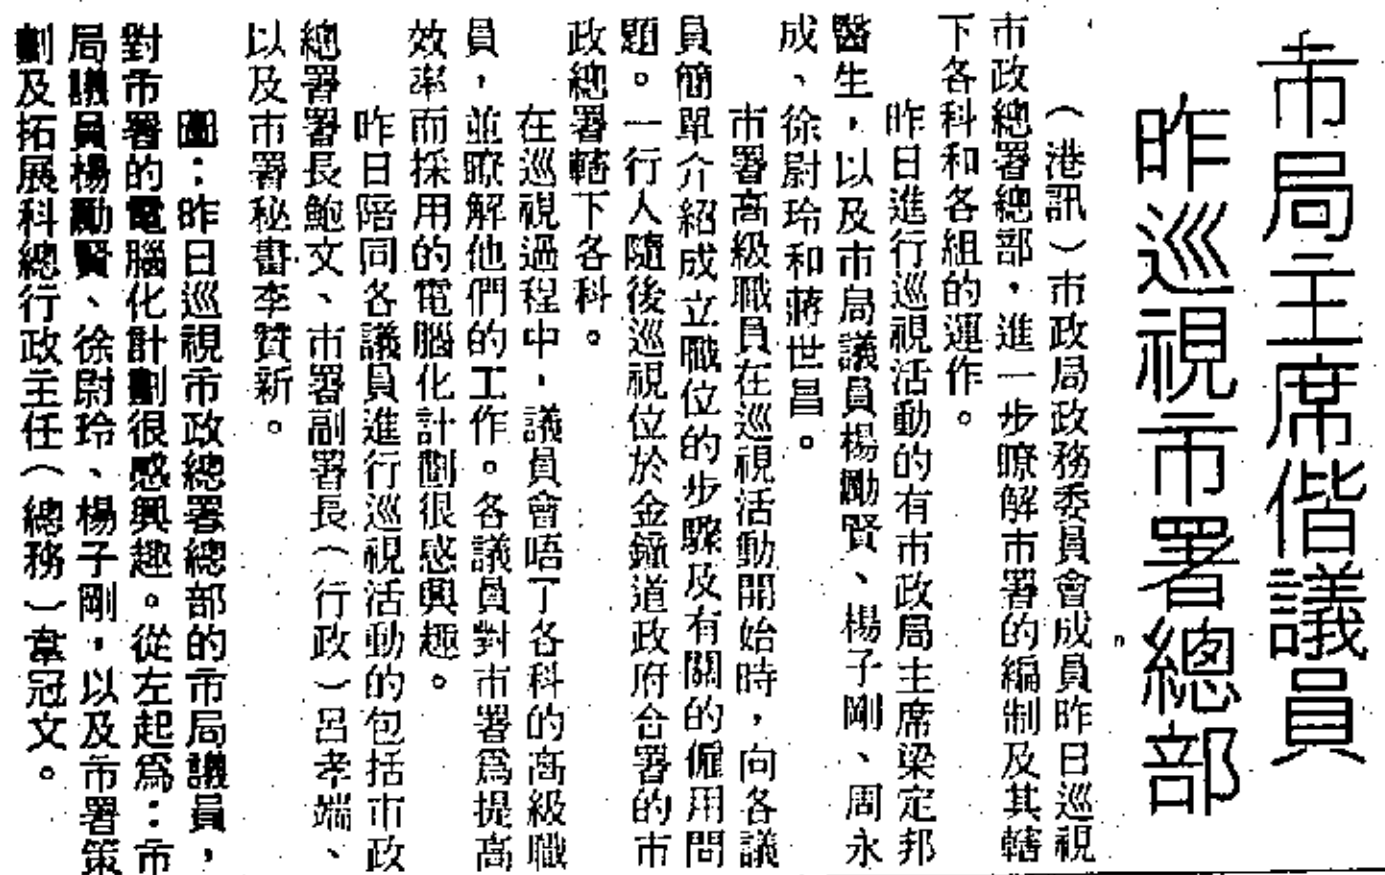 市局主席偕議員
昨巡視市署總部
（港訊）市政局政務委員會成員昨日巡視
市政總署總部，進一步瞭解市署的編制及其轄
下各科和各組的運作。
昨日進行巡視活動的有市政局主席梁定邦
醫生，以及市局議員楊勵賢、楊子剛、周永
成、徐尉玲和蔣世昌。
市署高級職員在巡視活動開始時，向各議
員簡單介紹成立職位的步驟及有關的僱用問
題。一行人隨後巡視位於金鐘道政府合署的市
政總署轄下各科。
在巡視過程中，議員會晤了各科的高級職
員，並瞭解他們的工作。各議員對市署為提高
效率而採用的電腦化計劃很感興趣。
昨日陪同各議員進行巡視活動的包括市政
總署署長鮑文、市署副署長（行政）呂孝端、
以及市署秘書李贊新。
圖：昨日巡視市政總署總部的市局議員，
對市署的電腦化計劃很感興趣。從左起為：市
局議員楊勵賢、徐尉玲、楊子剛，以及市署策
劃及拓展科總行政主任（總務）韋冠文。